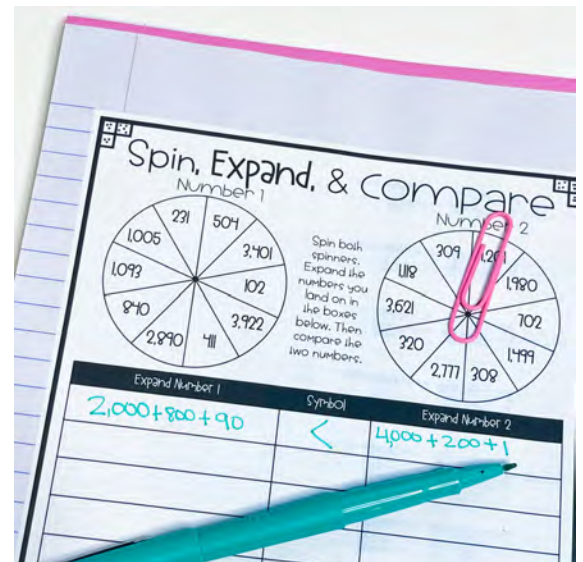 Spin, Expand, & Compare
Number 1
Number 2
504
3,401
102
3,922
411
2,890
840
1,093
1,005
231
Spin both
spinners.
Expand the
numbers you
land on in
the boxes
below. Then
compare the
two numbers.
1,980
702
1,499
308
2,777
320
3,621
1,118
309
Expand Number 1
Symbol
Expand Number 2
2,000+800+90
<
4,000+200+1